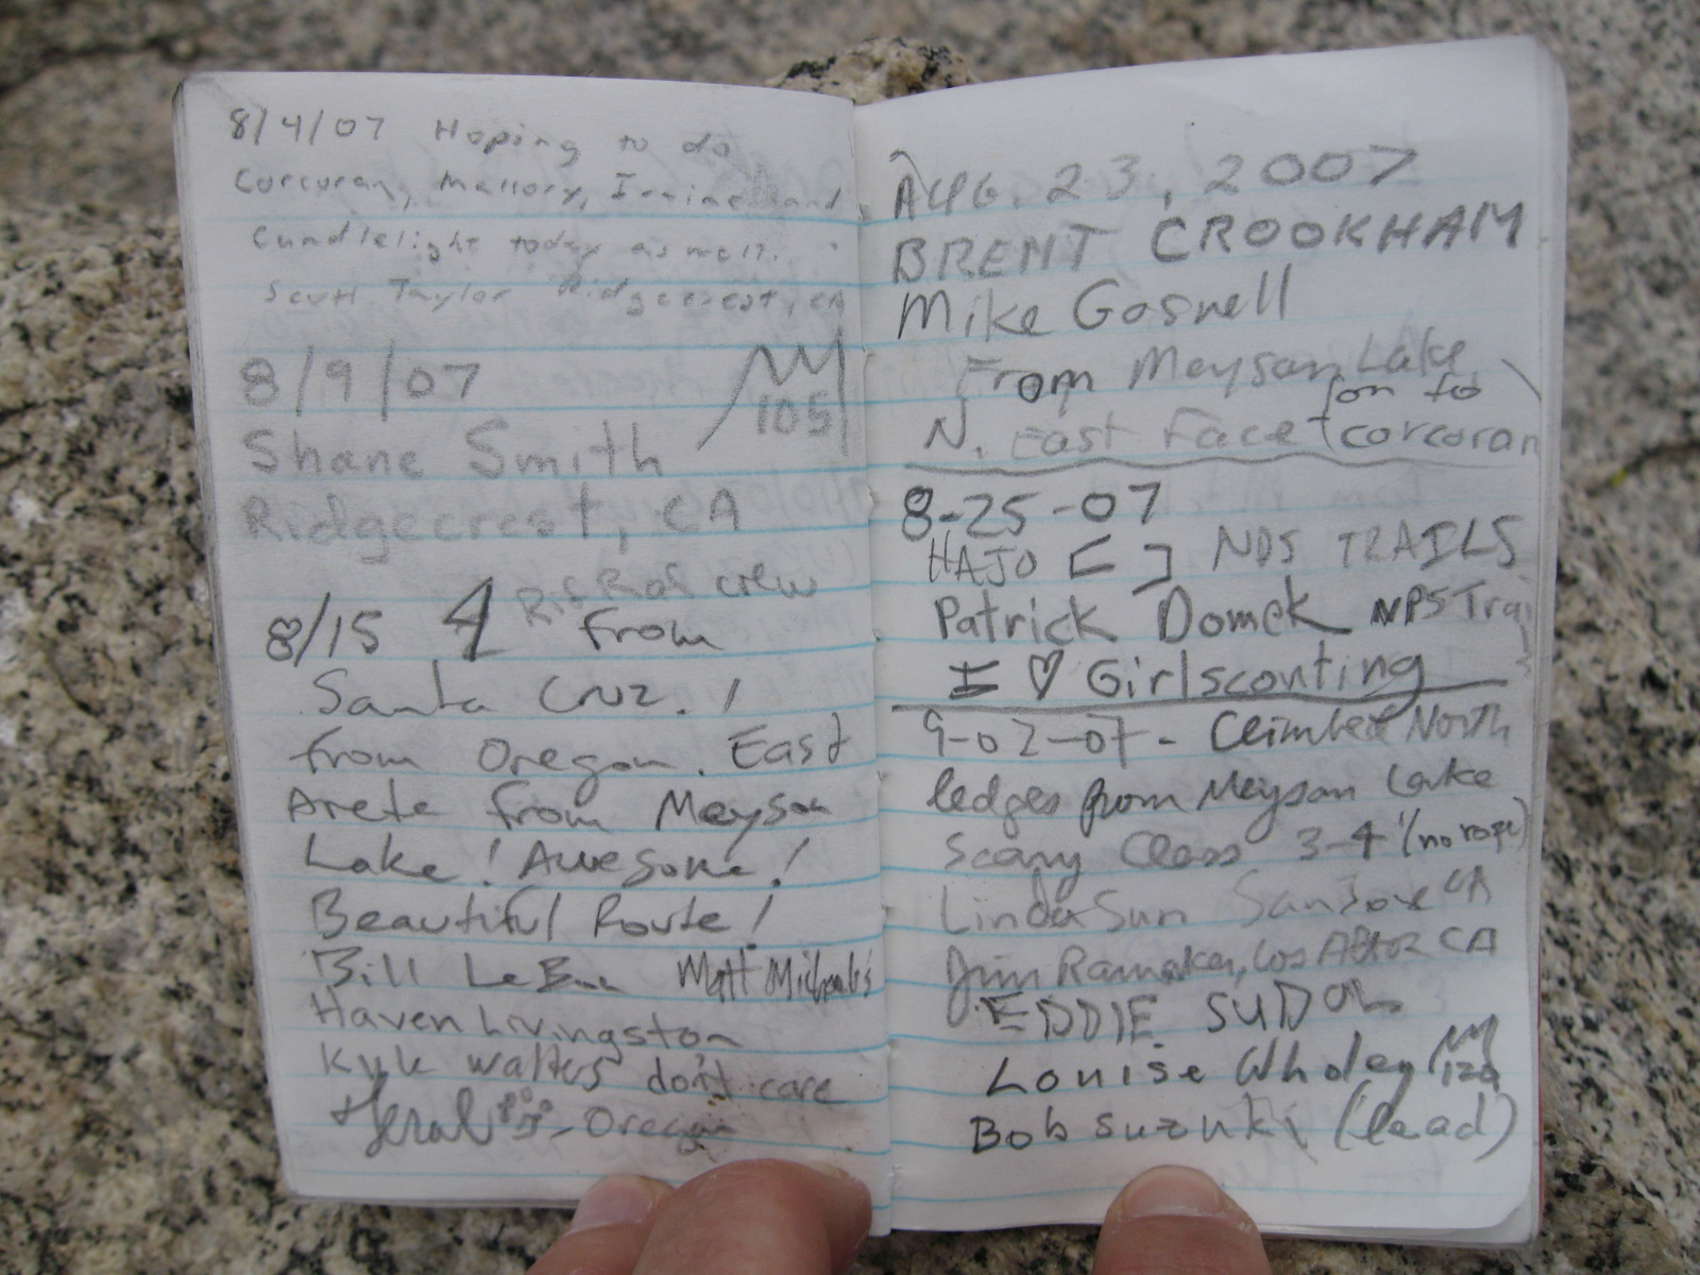 8/4/07 Hoping to do
Corcoran, Mallory, Irvine, and
Candlelight today as well.
Scott Taylor Ridgecrest, CA
8/9/07
105
Shane Smith
Ridgecrest, CA
crew
8/15 4 from
Santa Cruz. 1
from Oregon. East
Arete from Meysan
Lake! Awesome!
Beautiful Route!
Bill Matt Michaels
Haven Livingston
Kyle Walters don't care
- Oregon
AUG. 23, 2007
BRENT CROOKHAM
Mike Gosnell
From Meysan Lake
N. East Face (on to corcoran
8-25-07
HAJO [ ] NPS TRAILS
Patrick Domek NPS Trai
I ♡ Girlscouting
9-02-07- Climbed North
ledges from Meysan Lake
Scary Class 3-4 (no rope)
Linda Sun San Jose CA
Jim Ramaker, Los Altos CA
EDDIE SUDOL
Louise Wholey
Bob Suzuki (lead)